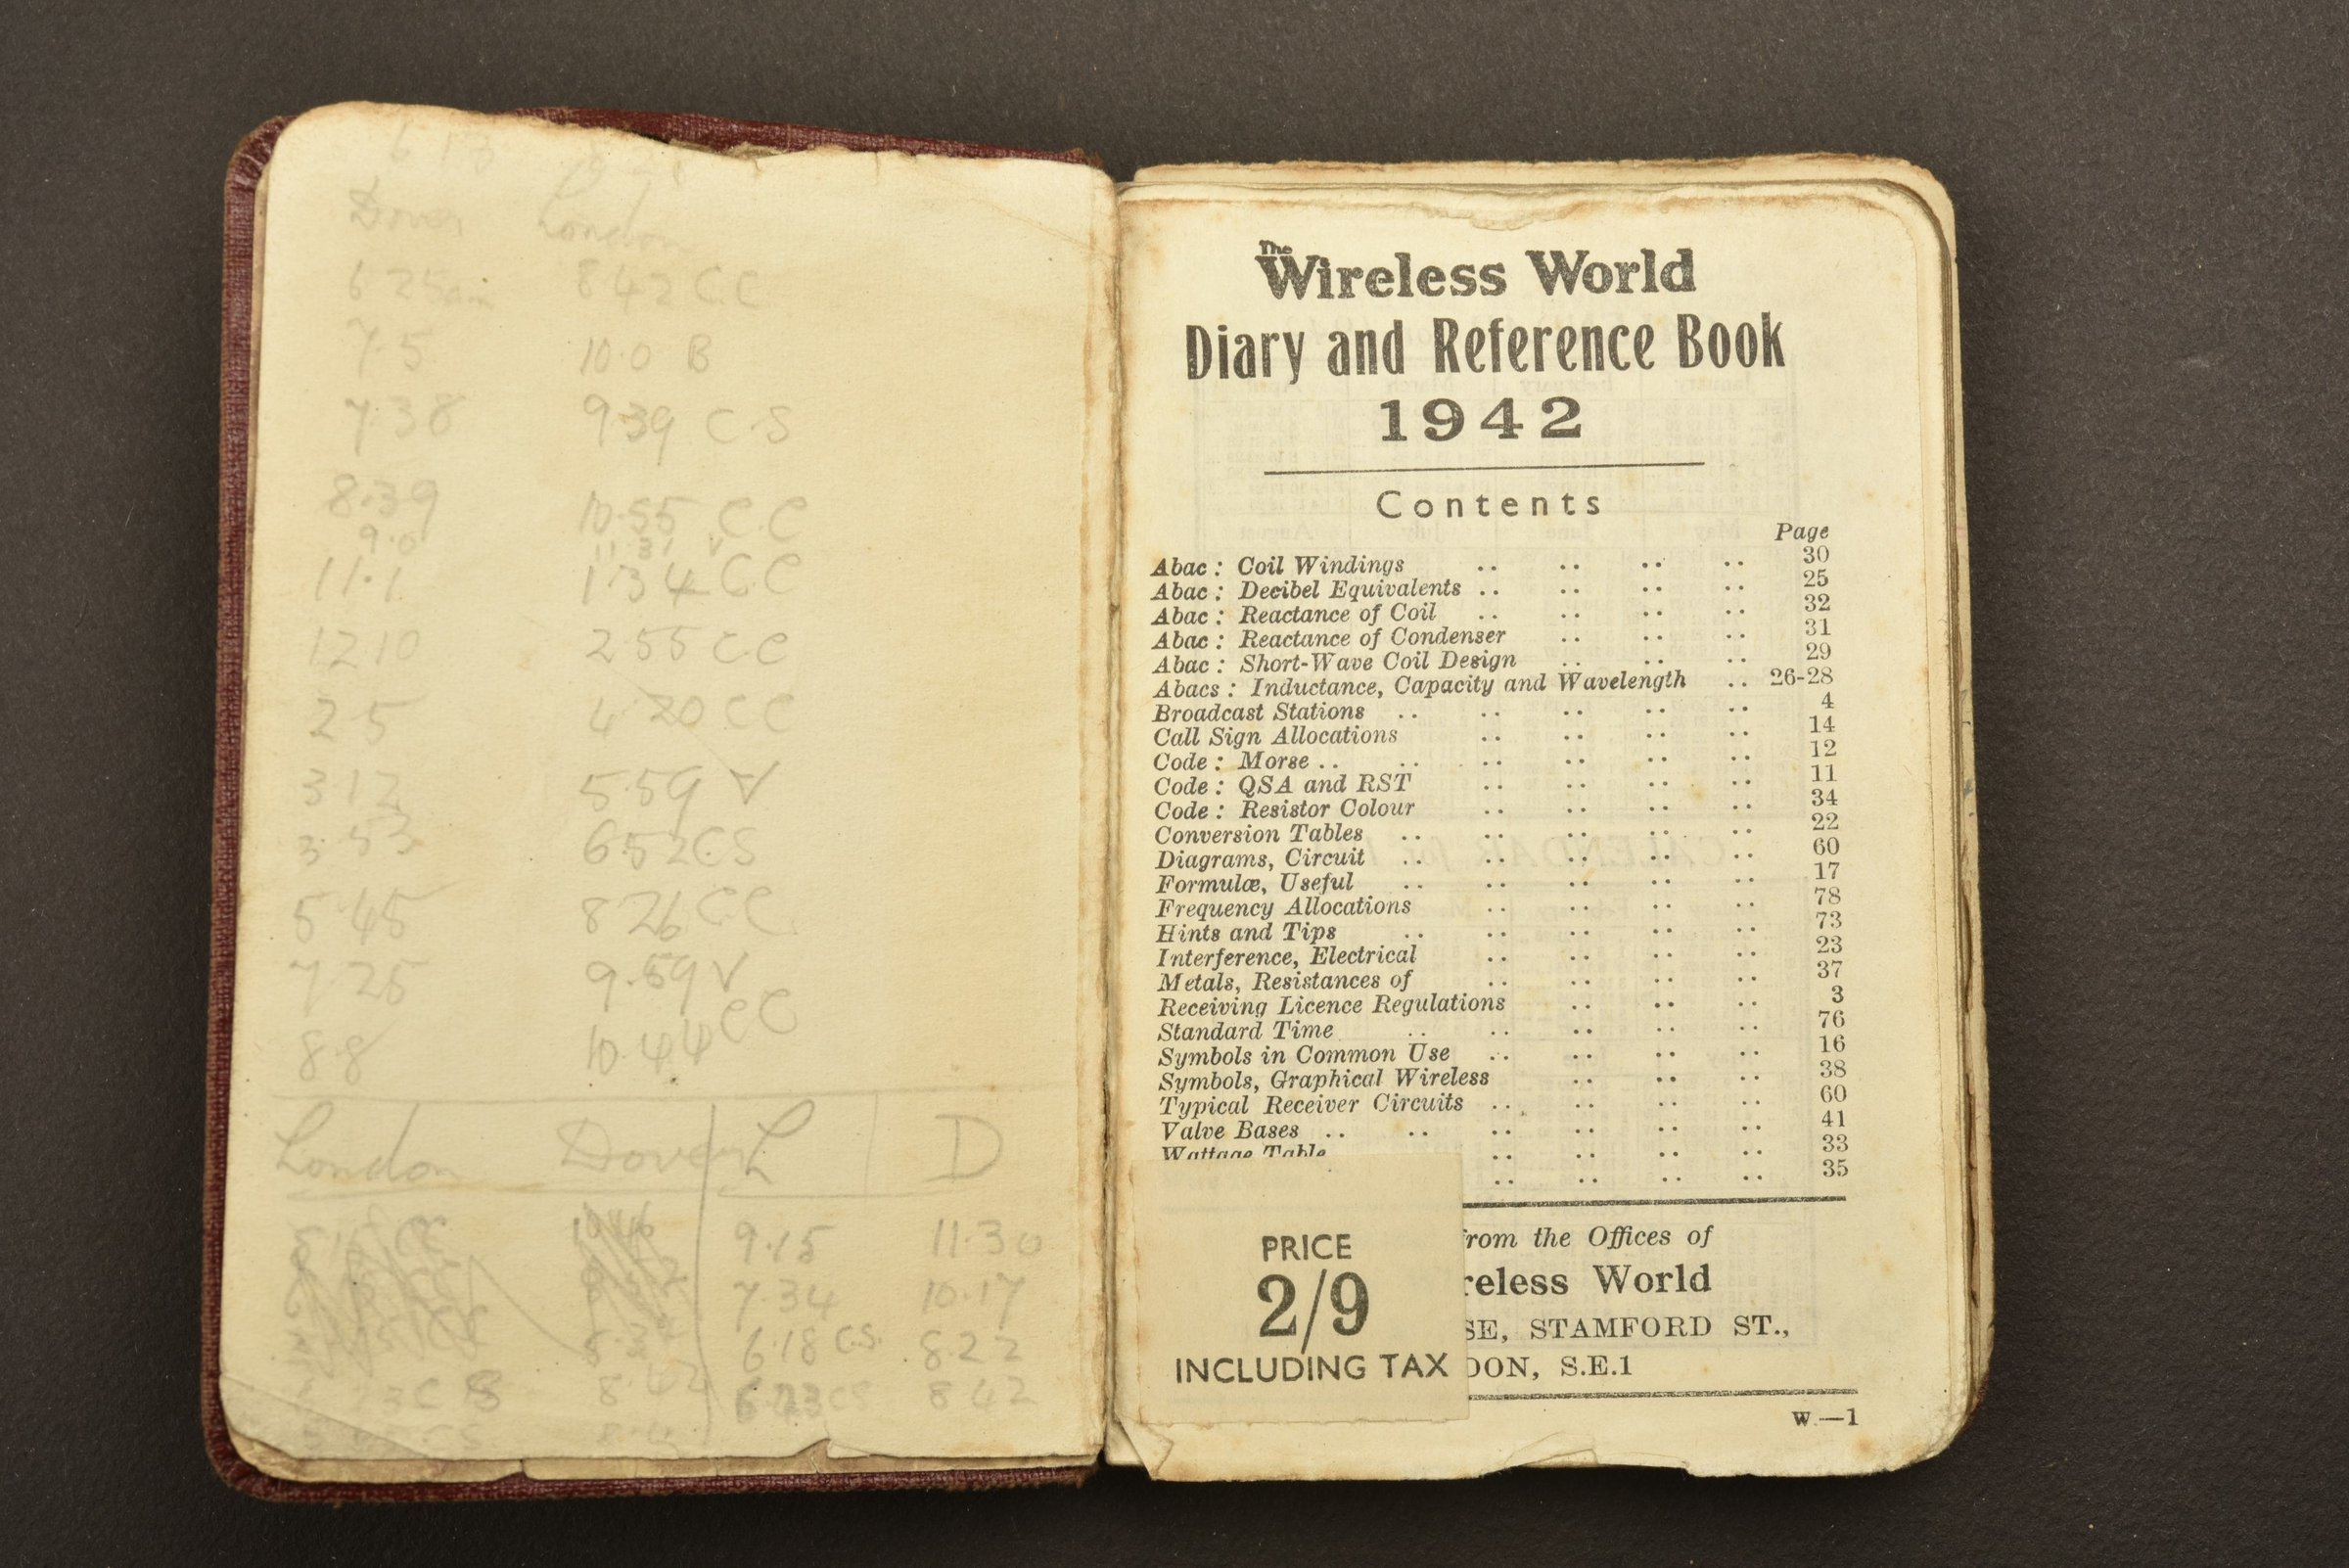 6 13
Dover London
6 25am 8 42 C.C
7.5 10.0 B
7.38 9 39 C.S
8.39 10.55 C.C
9.0 11 31 V
11.1 1.34 C.C
12 10 2 55 C.C
2 5 4 20 C C
3 12 5.59 V
3.53 6.52 C.S
5.45 8 26 C.C.
7.25 9.59 V
8.8 10.44 C C
London Dover L D
9.15 11.30
7.34 10.17
6.18 C.S. 8.22
8.42 6.23 CS 8 42
The
Wireless World
Diary and Reference Book
1942
Contents
Page
Abac : Coil Windings .. .. .. .. 30
Abac : Decibel Equivalents .. .. .. .. 25
Abac : Reactance of Coil .. .. .. .. 32
Abac : Reactance of Condenser .. .. .. 31
Abac : Short-Wave Coil Design .. .. .. 29
Abacs : Inductance, Capacity and Wavelength .. 26-28
Broadcast Stations .. .. .. .. .. 4
Call Sign Allocations .. .. .. .. 14
Code : Morse .. .. .. .. .. .. 12
Code : QSA and RST .. .. .. .. 11
Code : Resistor Colour .. .. .. .. 34
Conversion Tables .. .. .. .. .. 22
Diagrams, Circuit .. .. .. .. .. 60
Formulæ, Useful .. .. .. .. .. 17
Frequency Allocations .. .. .. .. 78
Hints and Tips .. .. .. .. .. 73
Interference, Electrical .. .. .. .. 23
Metals, Resistances of .. .. .. .. 37
Receiving Licence Regulations .. .. .. 3
Standard Time .. .. .. .. .. 76
Symbols in Common Use .. .. .. .. 16
Symbols, Graphical Wireless .. .. .. 38
Typical Receiver Circuits .. .. .. .. 60
Valve Bases .. .. .. .. .. .. 41
Wattage Table .. .. .. .. 33
.. .. .. .. 35
from the Offices of
reless World
SE, STAMFORD ST.,
DON, S.E.1
PRICE
2/9
INCLUDING TAX
W.—1